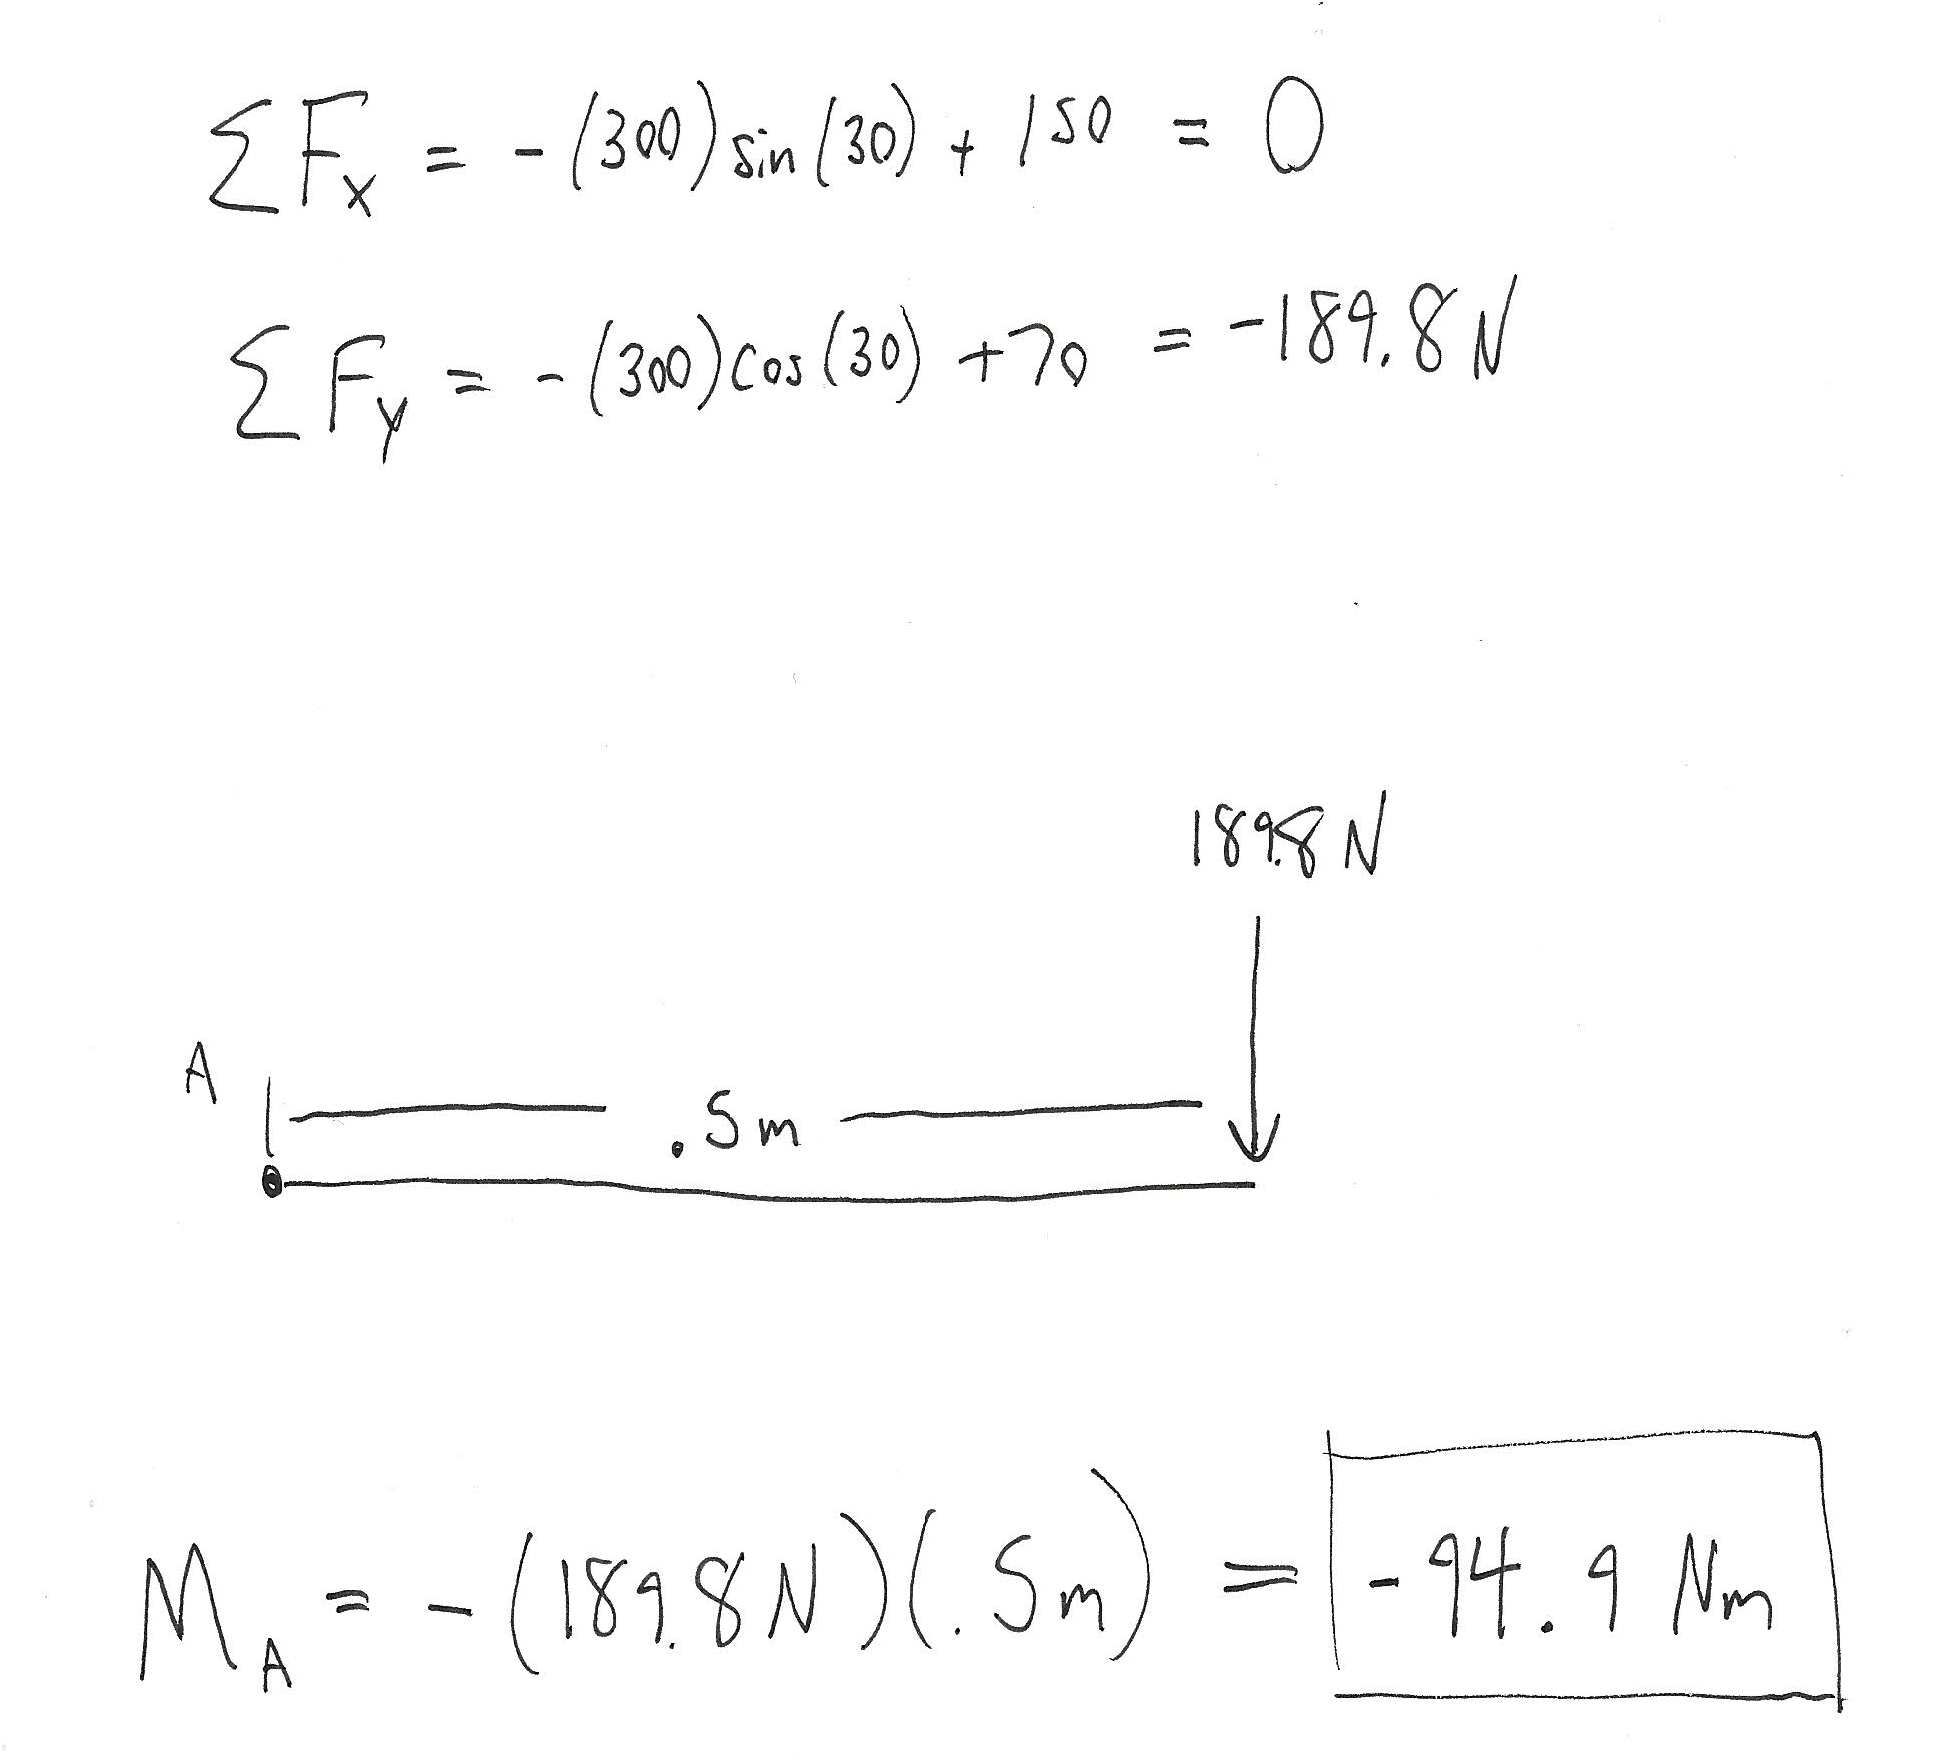 ΣFx = -(300) sin(30) + 150 = 0
ΣFy = -(300) cos(30) +70 = -189.8 N
189.8 N
A
.5m
MA = -(189.8 N)(.5m) = -94.9 Nm